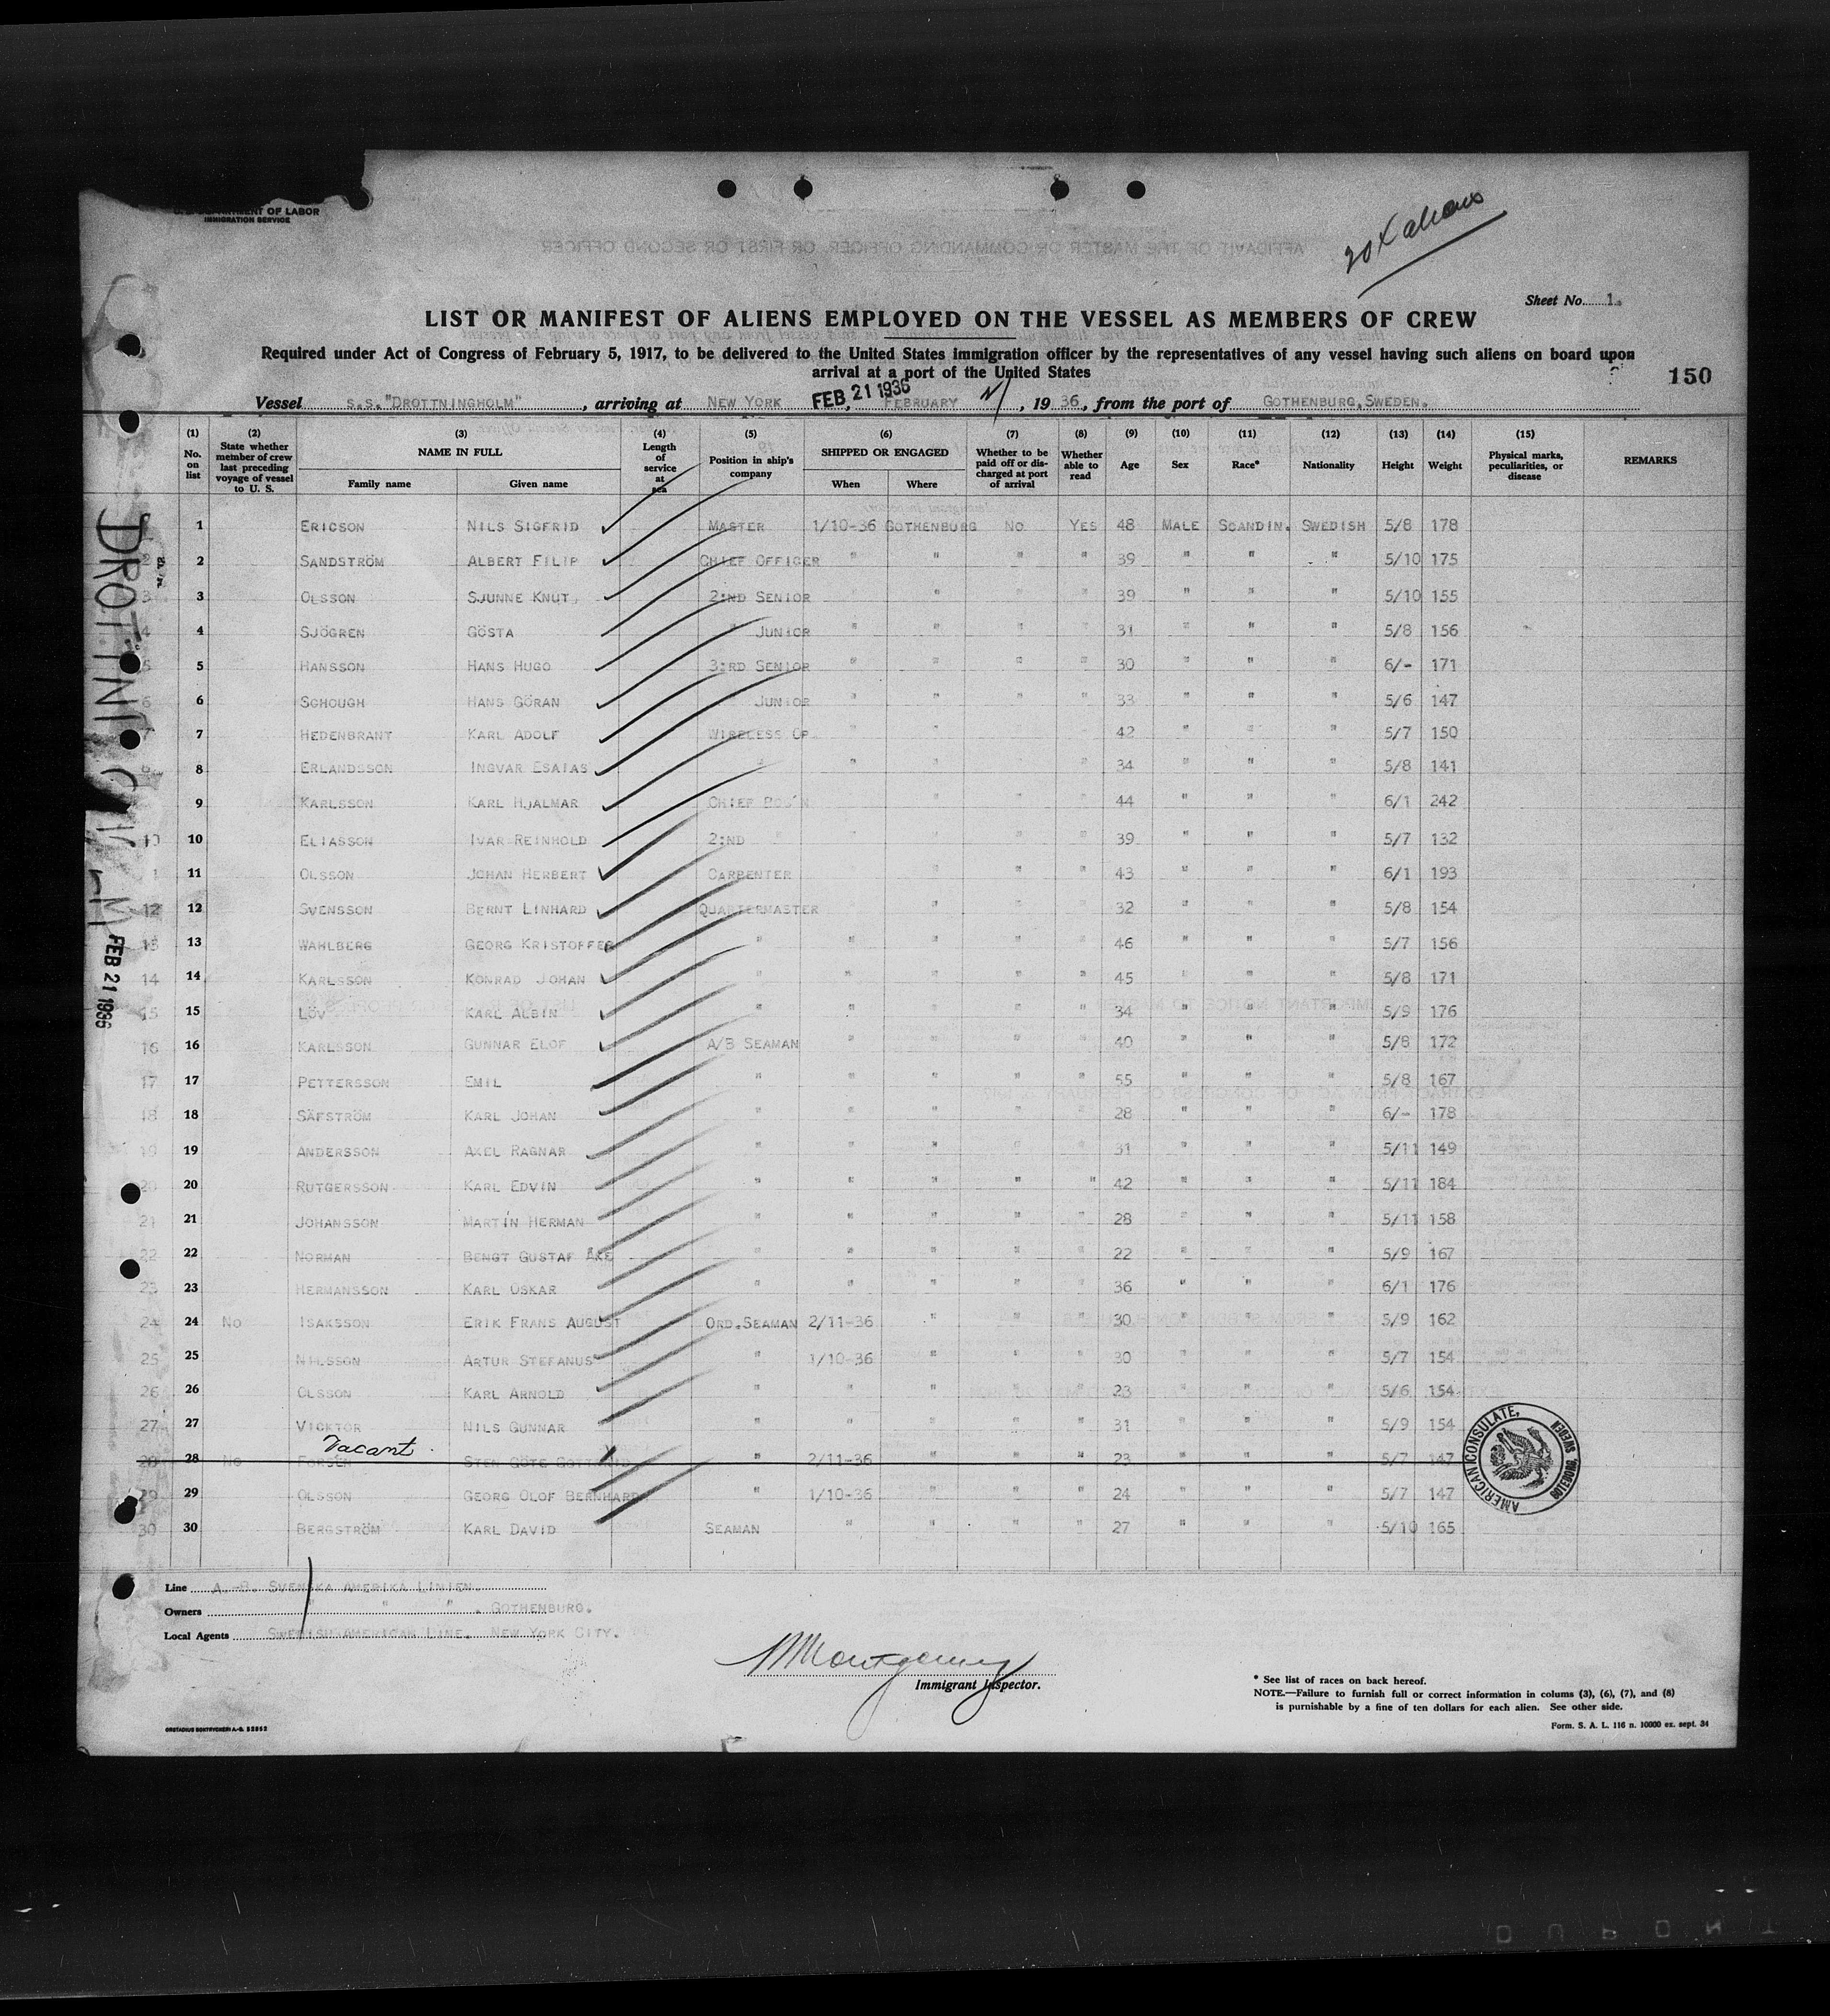 DEPARTMENT OF LABOR
IMMIGRATION SERVICE
aliens
Sheet No. 1.
LIST OR MANIFEST OF ALIENS EMPLOYED ON THE VESSEL AS MEMBERS OF CREW
Required under Act of Congress of February 5, 1917, to be delivered to the United States immigration officer by the representatives of any vessel having such aliens on board upon
arrival at a port of the United States
150
Vessel S.S. "DROTTNINGHOLM", arriving at NEW YORK FEB 21 1936, FEBRUARY, 19 36, from the port of GOTHENBURG, SWEDEN.
(1) No. on list (2) State whether member of crew last preceding voyage of vessel to U. S. (3) NAME IN FULL Family name Given name (4) Length of service at sea (5) Position in ship's company (6) SHIPPED OR ENGAGED When Where (7) Whether to be paid off or discharged at port of arrival (8) Whether able to read (9) Age (10) Sex (11) Race* (12) Nationality (13) Height (14) Weight (15) Physical marks, peculiarities, or disease REMARKS
1 ERICSON NILS SIGFRID MASTER 1/10-36 GOTHENBURG NO YES 48 MALE SCANDIN. SWEDISH 5/8 178
2 SANDSTRÖM ALBERT FILIP CHIEF OFFICER " " " " 39 " " " 5/10 175
3 OLSSON SJUNNE KNUT 2:ND SENIOR " " " " 39 " " " 5/10 155
4 SJÖGREN GÖSTA " JUNIOR " " " " 31 " " " 5/8 156
5 HANSSON HANS HUGO 3:RD SENIOR " " " " 30 " " " 6/- 171
6 SCHOUGH HANS GÖRAN " JUNIOR " " " " 33 " " " 5/6 147
7 HEDENBRANT KARL ADOLF WIRELESS OP. " " " " 42 " " " 5/7 150
8 ERLANDSSON INGVAR ESAIAS " " " " " 34 " " " 5/8 141
9 KARLSSON KARL HJALMAR CHIEF BOS'N " " " " 44 " " " 6/1 242
10 ELIASSON IVAR REINHOLD 2:ND " " " " " 39 " " " 5/7 132
11 OLSSON JOHAN HERBERT CARPENTER " " " " 43 " " " 6/1 193
12 SVENSSON BERNT LINHARD QUARTERMASTER " " " " 32 " " " 5/8 154
13 WAHLBERG GEORG KRISTOFFER " " " " " 46 " " " 5/7 156
14 KARLSSON KONRAD JOHAN " " " " " 45 " " " 5/8 171
15 LÖV KARL ALBIN " " " " " 34 " " " 5/9 176
16 KARLSSON GUNNAR ELOF A/B SEAMAN " " " " 40 " " " 5/8 172
17 PETTERSSON EMIL " " " " " 55 " " " 5/8 167
18 SÄFSTRÖM KARL JOHAN " " " " " 28 " " " 6/- 178
19 ANDERSSON AXEL RAGNAR " " " " " 31 " " " 5/11 149
20 RUTGERSSON KARL EDVIN " " " " " 42 " " " 5/11 184
21 JOHANSSON MARTIN HERMAN " " " " " 28 " " " 5/11 158
22 NORMAN BENGT GUSTAF ÅKE " " " " " 22 " " " 5/9 167
23 HERMANSSON KARL OSKAR " " " " " 36 " " " 6/1 176
24 NO ISAKSSON ERIK FRANS AUGUST ORD. SEAMAN 2/11-36 " " " 30 " " " 5/9 162
25 NILSSON ARTUR STEFANUS " 1/10-36 " " " 30 " " " 5/7 154
26 OLSSON KARL ARNOLD " " " " " 23 " " " 5/6 154
27 VICKTOR NILS GUNNAR " " " " " 31 " " " 5/9 154
Vacant
28 NO FORSÉN STEN GÖTE " 2/11-36 " " " 23 " " " 5/7 147
29 OLSSON GEORG OLOF BERNHARD " 1/10-36 " " " 24 " " " 5/7 147
30 BERGSTRÖM KARL DAVID SEAMAN " " " " 27 " " " 5/10 165
AMERICAN CONSULATE, GOTEBORG, SWEDEN
DROTTNINGHOLM
FEB 21 1936
Line A.-B. SVENSKA AMERIKA LINIEN.
Owners " " " . GOTHENBURG.
Local Agents SWEDISH AMERICAN LINE. NEW YORK CITY.
Montgomery
Immigrant Inspector.
* See list of races on back hereof.
NOTE.—Failure to furnish full or correct information in colums (3), (6), (7), and (8)
is purnishable by a fine of ten dollars for each alien. See other side.
Form. S. A. L. 116 n. 10000 ex. sept. 34
DUPONT